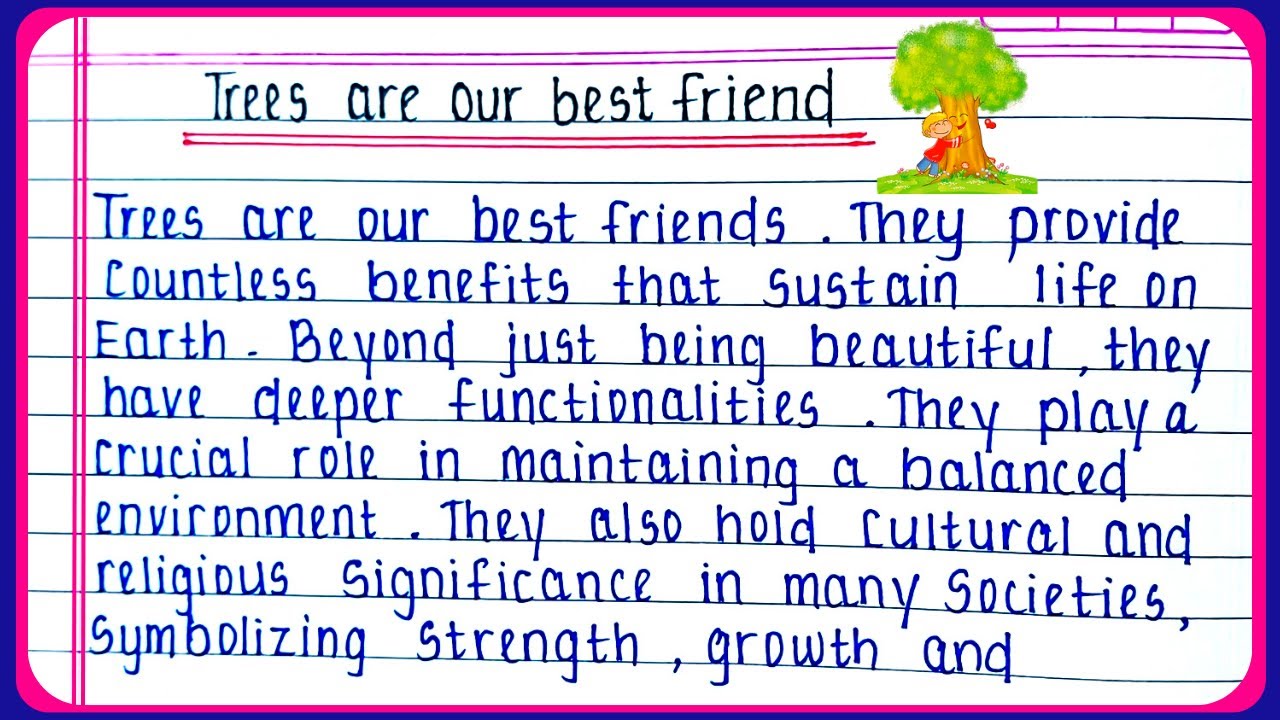 Trees are our best friend
Trees are our best friends. They provide
countless benefits that sustain life on
Earth. Beyond just being beautiful, they
have deeper functionalities. They play a
crucial role in maintaining a balanced
environment. They also hold cultural and
religious significance in many societies,
symbolizing strength, growth and